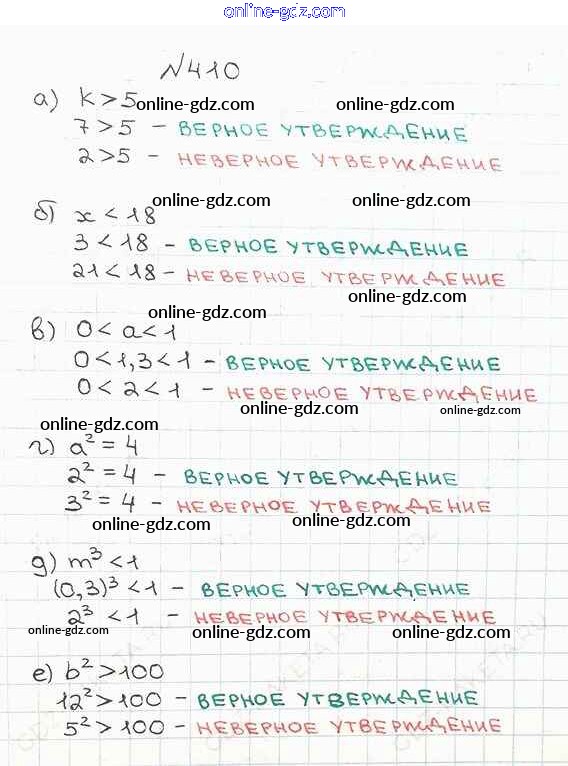 online-gdz.com
№410
а) k > 5 online-gdz.com online-gdz.com
7 > 5 – ВЕРНОЕ УТВЕРЖДЕНИЕ
2 > 5 – НЕВЕРНОЕ УТВЕРЖДЕНИЕ
online-gdz.com online-gdz.com
б) x < 18
3 < 18 – ВЕРНОЕ УТВЕРЖДЕНИЕ
21 < 18 – НЕВЕРНОЕ УТВЕРЖДЕНИЕ
online-gdz.com
online-gdz.com
в) 0 < a < 1
0 < 1,3 < 1 – ВЕРНОЕ УТВЕРЖДЕНИЕ
0 < 2 < 1 – НЕВЕРНОЕ УТВЕРЖДЕНИЕ
online-gdz.com online-gdz.com
online-gdz.com
г) a² = 4
2² = 4 – ВЕРНОЕ УТВЕРЖДЕНИЕ
3² = 4 – НЕВЕРНОЕ УТВЕРЖДЕНИЕ
online-gdz.com online-gdz.com
д) m³ < 1
(0,3)³ < 1 – ВЕРНОЕ УТВЕРЖДЕНИЕ
2³ < 1 – НЕВЕРНОЕ УТВЕРЖДЕНИЕ
online-gdz.com online-gdz.com online-gdz.com
е) b² > 100
12² > 100 – ВЕРНОЕ УТВЕРЖДЕНИЕ
5² > 100 – НЕВЕРНОЕ УТВЕРЖДЕНИЕ
online-gdz.com